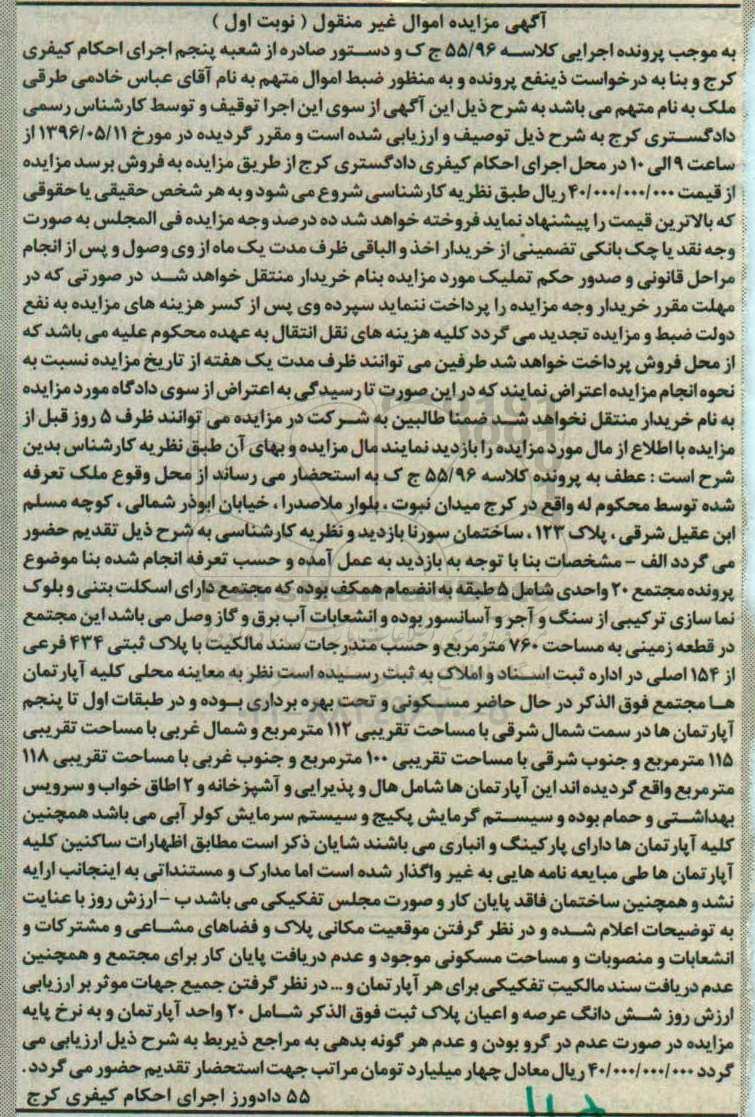 آگهی مزایده اموال غیر منقول ( نوبت اول )
به موجب پرونده اجرایی کلاسه ۵۵/۹۶ ج ک و دستور صادره از شعبه پنجم اجرای احکام کیفری
کرج و بنا به درخواست ذینفع پرونده و به منظور ضبط اموال متهم به نام آقای عباس خادمی طرقی
ملک به نام متهم می باشد به شرح ذیل این آگهی از سوی این اجرا توقیف و توسط کارشناس رسمی
دادگستری کرج به شرح ذیل توصیف و ارزیابی شده است و مقرر گردیده در مورخ ۱۳۹۶/۰۵/۱۱ از
ساعت ۹ الی ۱۰ در محل اجرای احکام کیفری دادگستری کرج از طریق مزایده به فروش برسد مزایده
از قیمت ۴۰/۰۰۰/۰۰۰/۰۰۰ ریال طبق نظریه کارشناسی شروع می شود و به هر شخص حقیقی یا حقوقی
که بالاترین قیمت را پیشنهاد نماید فروخته خواهد شد ده درصد وجه مزایده فی المجلس به صورت
وجه نقد یا چک بانکی تضمینی از خریدار اخذ و الباقی ظرف مدت یک ماه از وی وصول و پس از انجام
مراحل قانونی و صدور حکم تملیک مورد مزایده بنام خریدار منتقل خواهد شد در صورتی که در
مهلت مقرر خریدار وجه مزایده را پرداخت ننماید سپرده وی پس از کسر هزینه های مزایده به نفع
دولت ضبط و مزایده تجدید می گردد کلیه هزینه های نقل انتقال به عهده محکوم علیه می باشد که
از محل فروش پرداخت خواهد شد طرفین می توانند ظرف مدت یک هفته از تاریخ مزایده نسبت به
نحوه انجام مزایده اعتراض نمایند که در این صورت تا رسیدگی به اعتراض از سوی دادگاه مورد مزایده
به نام خریدار منتقل نخواهد شد ضمنا طالبین به شرکت در مزایده می توانند ظرف ۵ روز قبل از
مزایده با اطلاع از مال مورد مزایده را بازدید نمایند مال مزایده و بهای آن طبق نظریه کارشناس بدین
شرح است : عطف به پرونده کلاسه ۵۵/۹۶ ج ک به استحضار می رساند از محل وقوع ملک تعرفه
شده توسط محکوم له واقع در کرج میدان نبوت ، بلوار ملاصدرا ، خیابان ابوذر شمالی ، کوچه مسلم
ابن عقیل شرقی ، پلاک ۱۲۳ ، ساختمان سورنا بازدید و نظریه کارشناسی به شرح ذیل تقدیم حضور
می گردد الف - مشخصات بنا با توجه به بازدید به عمل آمده و حسب تعرفه انجام شده بنا موضوع
پرونده مجتمع ۲۰ واحدی شامل ۵ طبقه به انضمام همکف بوده که مجتمع دارای اسکلت بتنی و بلوک
نما سازی ترکیبی از سنگ و آجر و آسانسور بوده و انشعابات آب برق و گاز وصل می باشد این مجتمع
در قطعه زمینی به مساحت ۷۶۰ مترمربع و حسب مندرجات سند مالکیت با پلاک ثبتی ۴۳۴ فرعی
از ۱۵۴ اصلی در اداره ثبت اسناد و املاک به ثبت رسیده است نظر به معاینه محلی کلیه آپارتمان
ها مجتمع فوق الذکر در حال حاضر مسکونی و تحت بهره برداری بوده و در طبقات اول تا پنجم
آپارتمان ها در سمت شمال شرقی با مساحت تقریبی ۱۱۲ مترمربع و شمال غربی با مساحت تقریبی
۱۱۵ مترمربع و جنوب شرقی با مساحت تقریبی ۱۰۰ مترمربع و جنوب غربی با مساحت تقریبی ۱۱۸
مترمربع واقع گردیده اند این آپارتمان ها شامل هال و پذیرایی و آشپزخانه و ۲ اطاق خواب و سرویس
بهداشتی و حمام بوده و سیستم گرمایش پکیج و سیستم سرمایش کولر آبی می باشد همچنین
کلیه آپارتمان ها دارای پارکینگ و انباری می باشند شایان ذکر است مطابق اظهارات ساکنین کلیه
آپارتمان ها طی مبایعه نامه هایی به غیر واگذار شده است اما مدارک و مستنداتی به اینجانب ارایه
نشد و همچنین ساختمان فاقد پایان کار و صورت مجلس تفکیکی می باشد ب - ارزش روز با عنایت
به توضیحات اعلام شده و در نظر گرفتن موقعیت مکانی پلاک و فضاهای مشاعی و مشترکات و
انشعابات و منصوبات و مساحت مسکونی موجود و عدم دریافت پایان کار برای مجتمع و همچنین
عدم دریافت سند مالکیت تفکیکی برای هر آپارتمان و ... در نظر گرفتن جمیع جهات موثر بر ارزیابی
ارزش روز شش دانگ عرصه و اعیان پلاک ثبت فوق الذکر شامل ۲۰ واحد آپارتمان و به نرخ پایه
مزایده در صورت عدم در گرو بودن و عدم هر گونه بدهی به مراجع ذیربط به شرح ذیل ارزیابی می
گردد ۴۰/۰۰۰/۰۰۰/۰۰۰ ریال معادل چهار میلیارد تومان مراتب جهت استحضار تقدیم حضور می گردد.
۵۵ دادورز اجرای احکام کیفری کرج